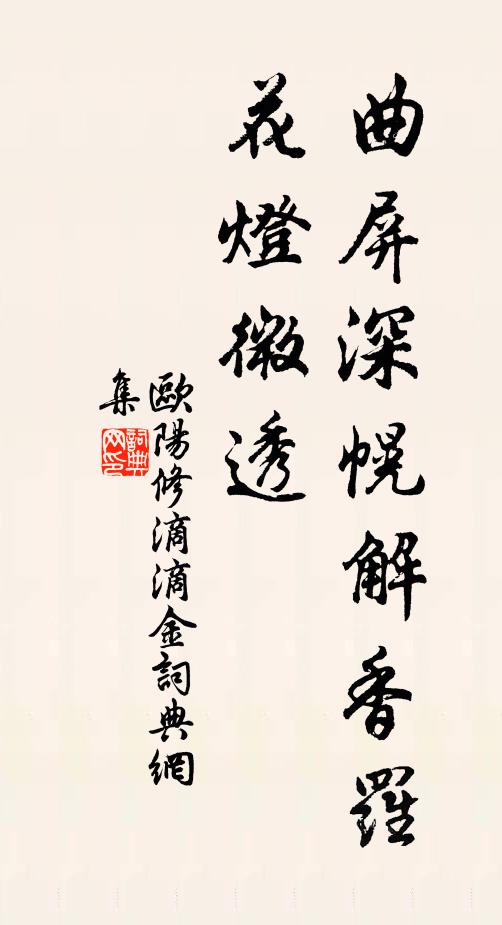 曲屏深幌解香羅
花燈微透
歐陽修滴滴金詞典網
集
詞典網印